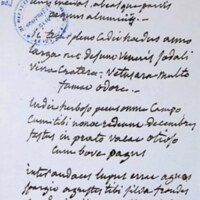 lenis incedas, abeasque parvis
aequus alumnis,
si tener pleno cadit haedus anno
larga nec desunt Veneris sodali
vina craterae. Vetus ara multo
fumat odore.
Ludit herboso pecus omne campo
cum tibi nonae redeunt decembres
festus in pratis vacat otioso
cum bove pagus
inter audaces lupus errat agnos
spargit agrestes tibi silva frondes